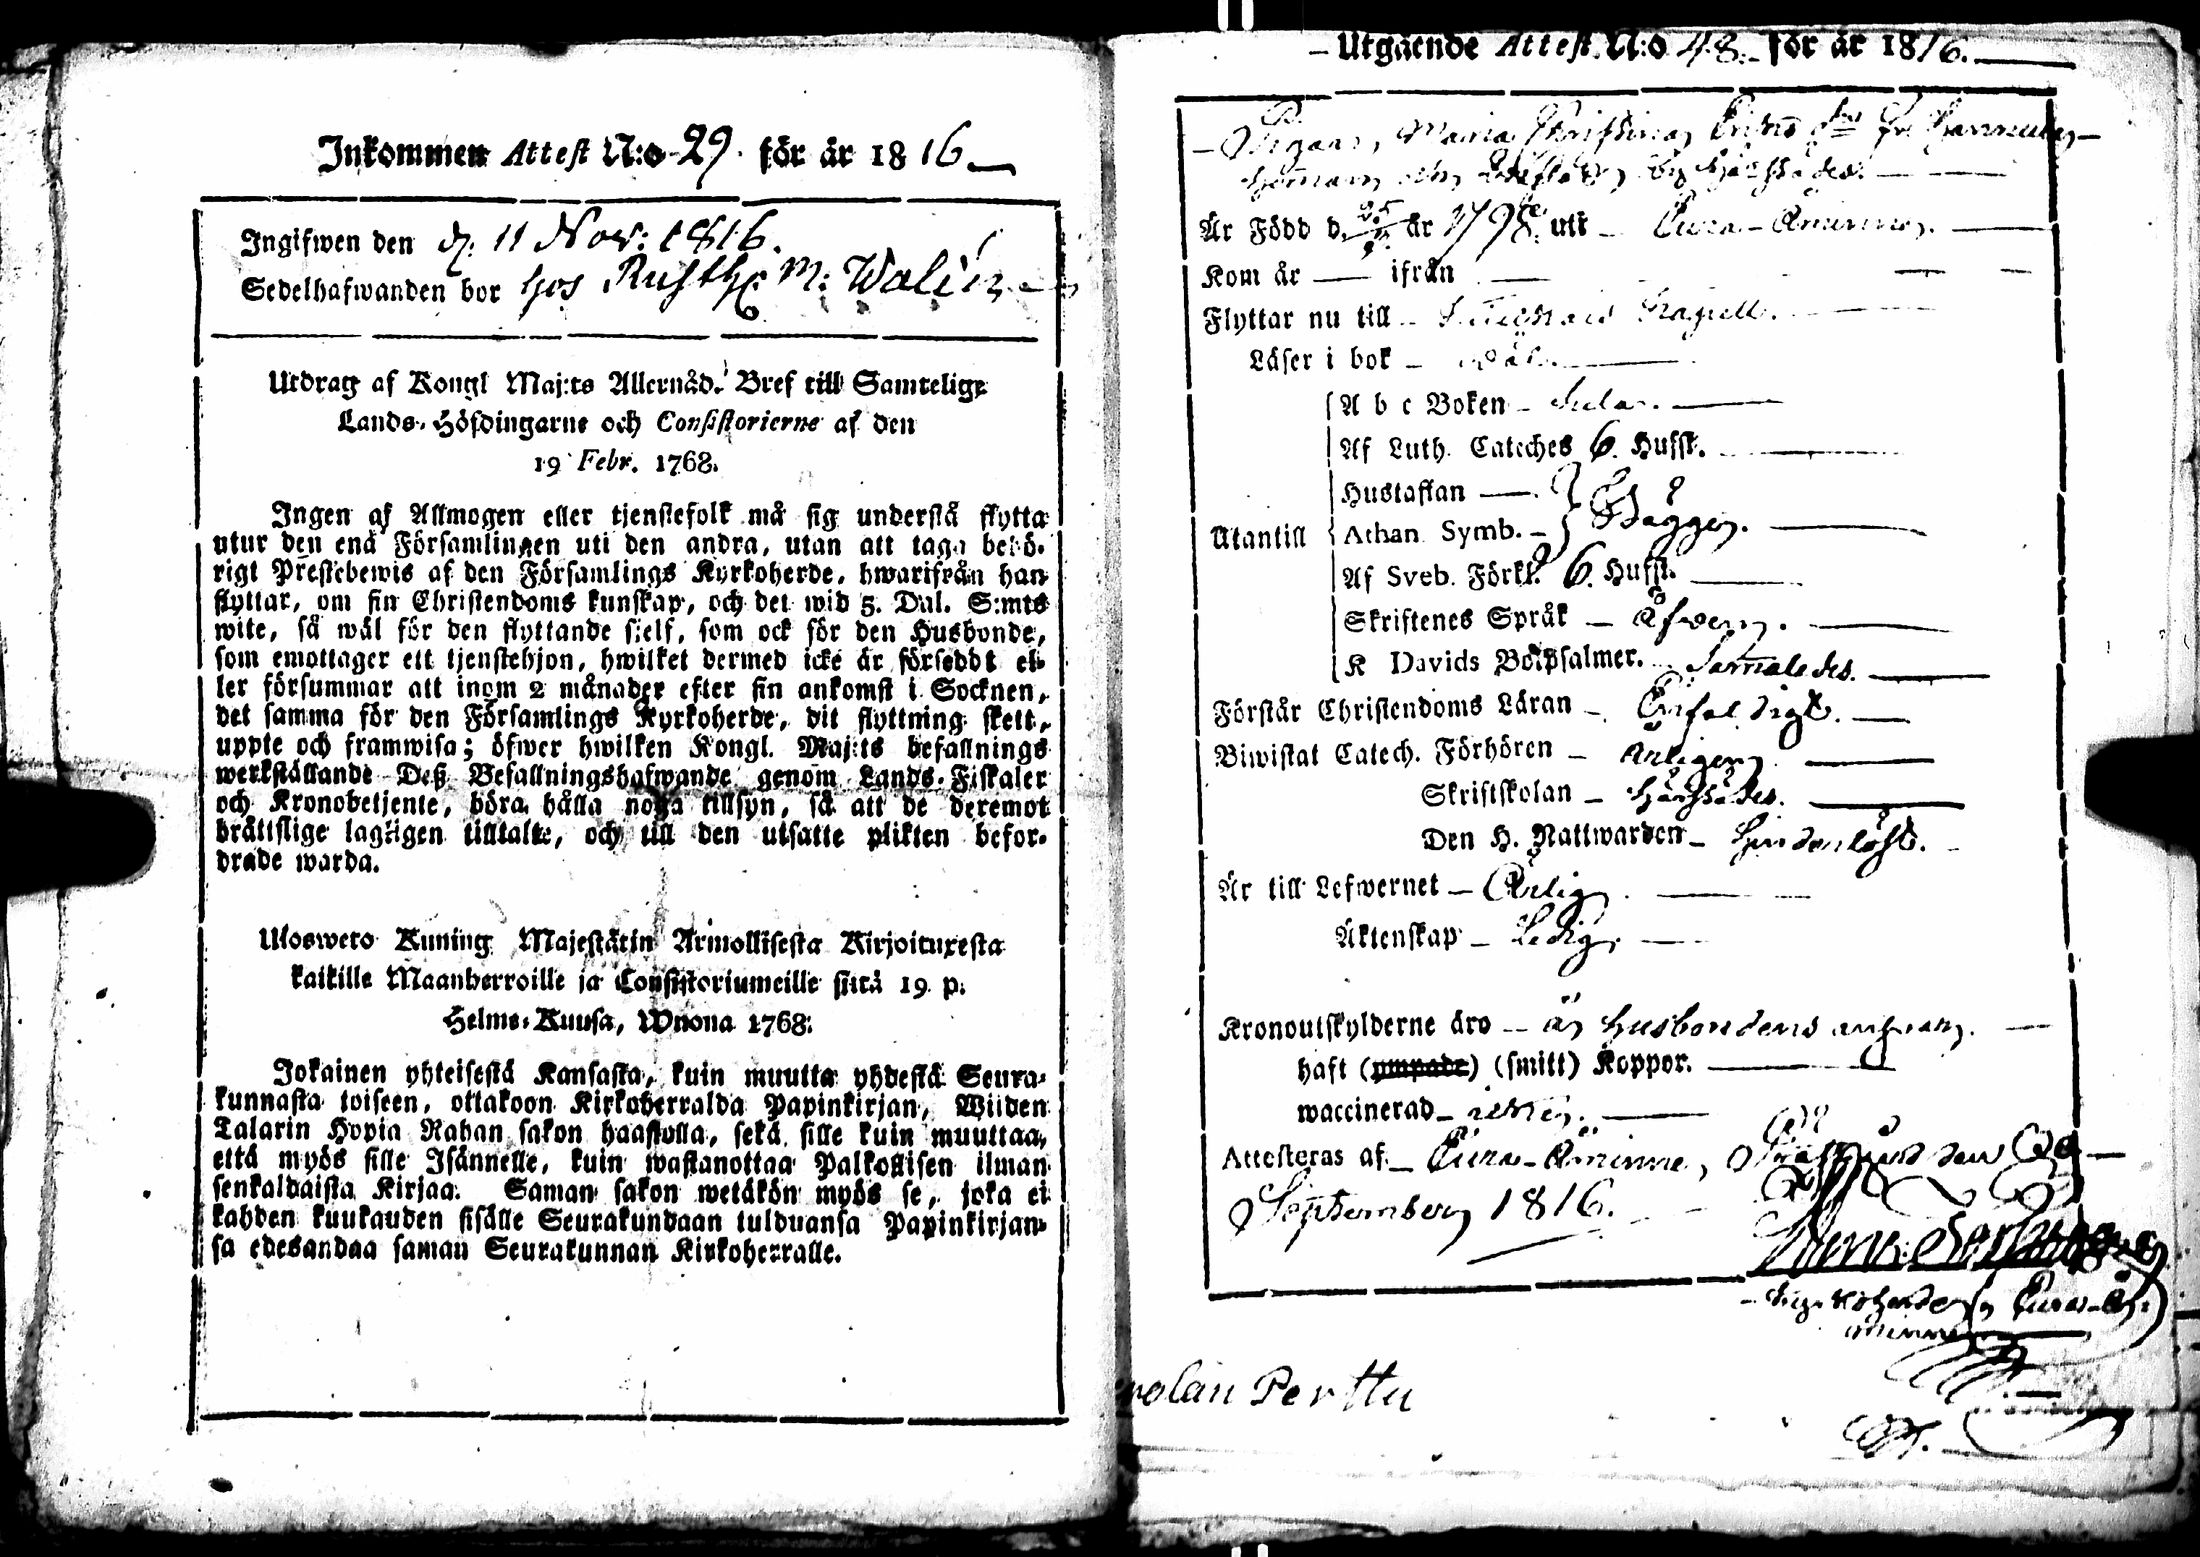 Inkommen Attest N:o 29. för år 1816
Ingifwen den d. 11 Nov: 1816.
Sedelhafwanden bor hos Rusth: M: Walin
Utdrag af Kongl Maj:ts Allernåd. Bref till Samtelige
Lands-Höfdingarne och Consistorierne af den
19 Febr. 1768.
Ingen af Allmogen eller tjenstefolk må sig understå flytta
utur den ena Församlingen uti den andra, utan att taga behö-
rigt Prestebewis af den Församlings Kyrkoherde, hwarifrån han
flyttar, om sin Christendoms kunskap, och det wid 5. Dal. S:mts
wite, så wäl för den flyttande sjelf, som ock för den Husbonde,
som emottager ett tjenstehjon, hwilket dermed icke är försedt el-
ler försummar att inom 2 månader efter sin ankomst i Socknen,
det samma för den Församlings Kyrkoherde, dit flyttning skett,
uppte och framwisa; öfwer hwilken Kongl. Maj:ts befallnings
werkställande Deß Befallningshafwande genom Lands-Fiskaler
och Kronobetjente, böra hålla noga tillsyn, så att de deremot
bråttslige lagligen tilltalte, och till den utsatte plikten befor-
drade warda.
Ulosweto Kuning Majestätin Armollisesta Kirjoituxesta
kaikille Maanherroille ja Consistoriumeille siitä 19 p.
Helme-Kuusa, Wuona 1768.
Jokainen yhteisestä Kansasta, kuin muutta yhdestä Seura-
kunnasta toiseen, ottakoon Kirkoherralda Papinkirjan, Wiiden
Talarin Hopia Rahan sakon haastolla, sekä sille kuin muuttaa,
että myös sille Isännelle, kuin wastanottaa Palkollisen ilman
senkaldaista Kirjaa. Saman sakon wetäkön myös se, joka ei
kahden kuukauden sisälle Seurakundaan tulduansa Papinkirjan-
sa edesandaa saman Seurakunnan Kirkoherralle.
Utgående Attest N:o 48. för år 1816.
Pigan, Maria Christina
Är Född d. år 1798 uti Eura-Åminne.
Kom år — ifrån —
Flyttar nu till Capell.
Läser i bok wäl.
A b c Boken
Af Luth. Cateches 6. Hufst.
Hustaflan
Utantill Athan. Symb. Bägge.
Af Sveb. Förkl. 6. Hufst.
Skriftenes Språk äfwen.
K Davids Botpsalmer. Samaledes.
Förstår Christendoms Läran Enfaldigt.
Biwistat Catech. Förhören årligen
Skriftskolan härstädes.
Den H. Nattwarden hinderlöst.
Är till Lefwernet Ärlig.
Äktenskap Ledig.
Kronoutskylderne äro å husbondens ansvar.
haft (umpade) (smitt) Koppor.
waccinerad
Attesteras af Eura-Åminne, Prästgård den
September 1816.
Kyrkoherde i Eura-Å-
minne
Perttu